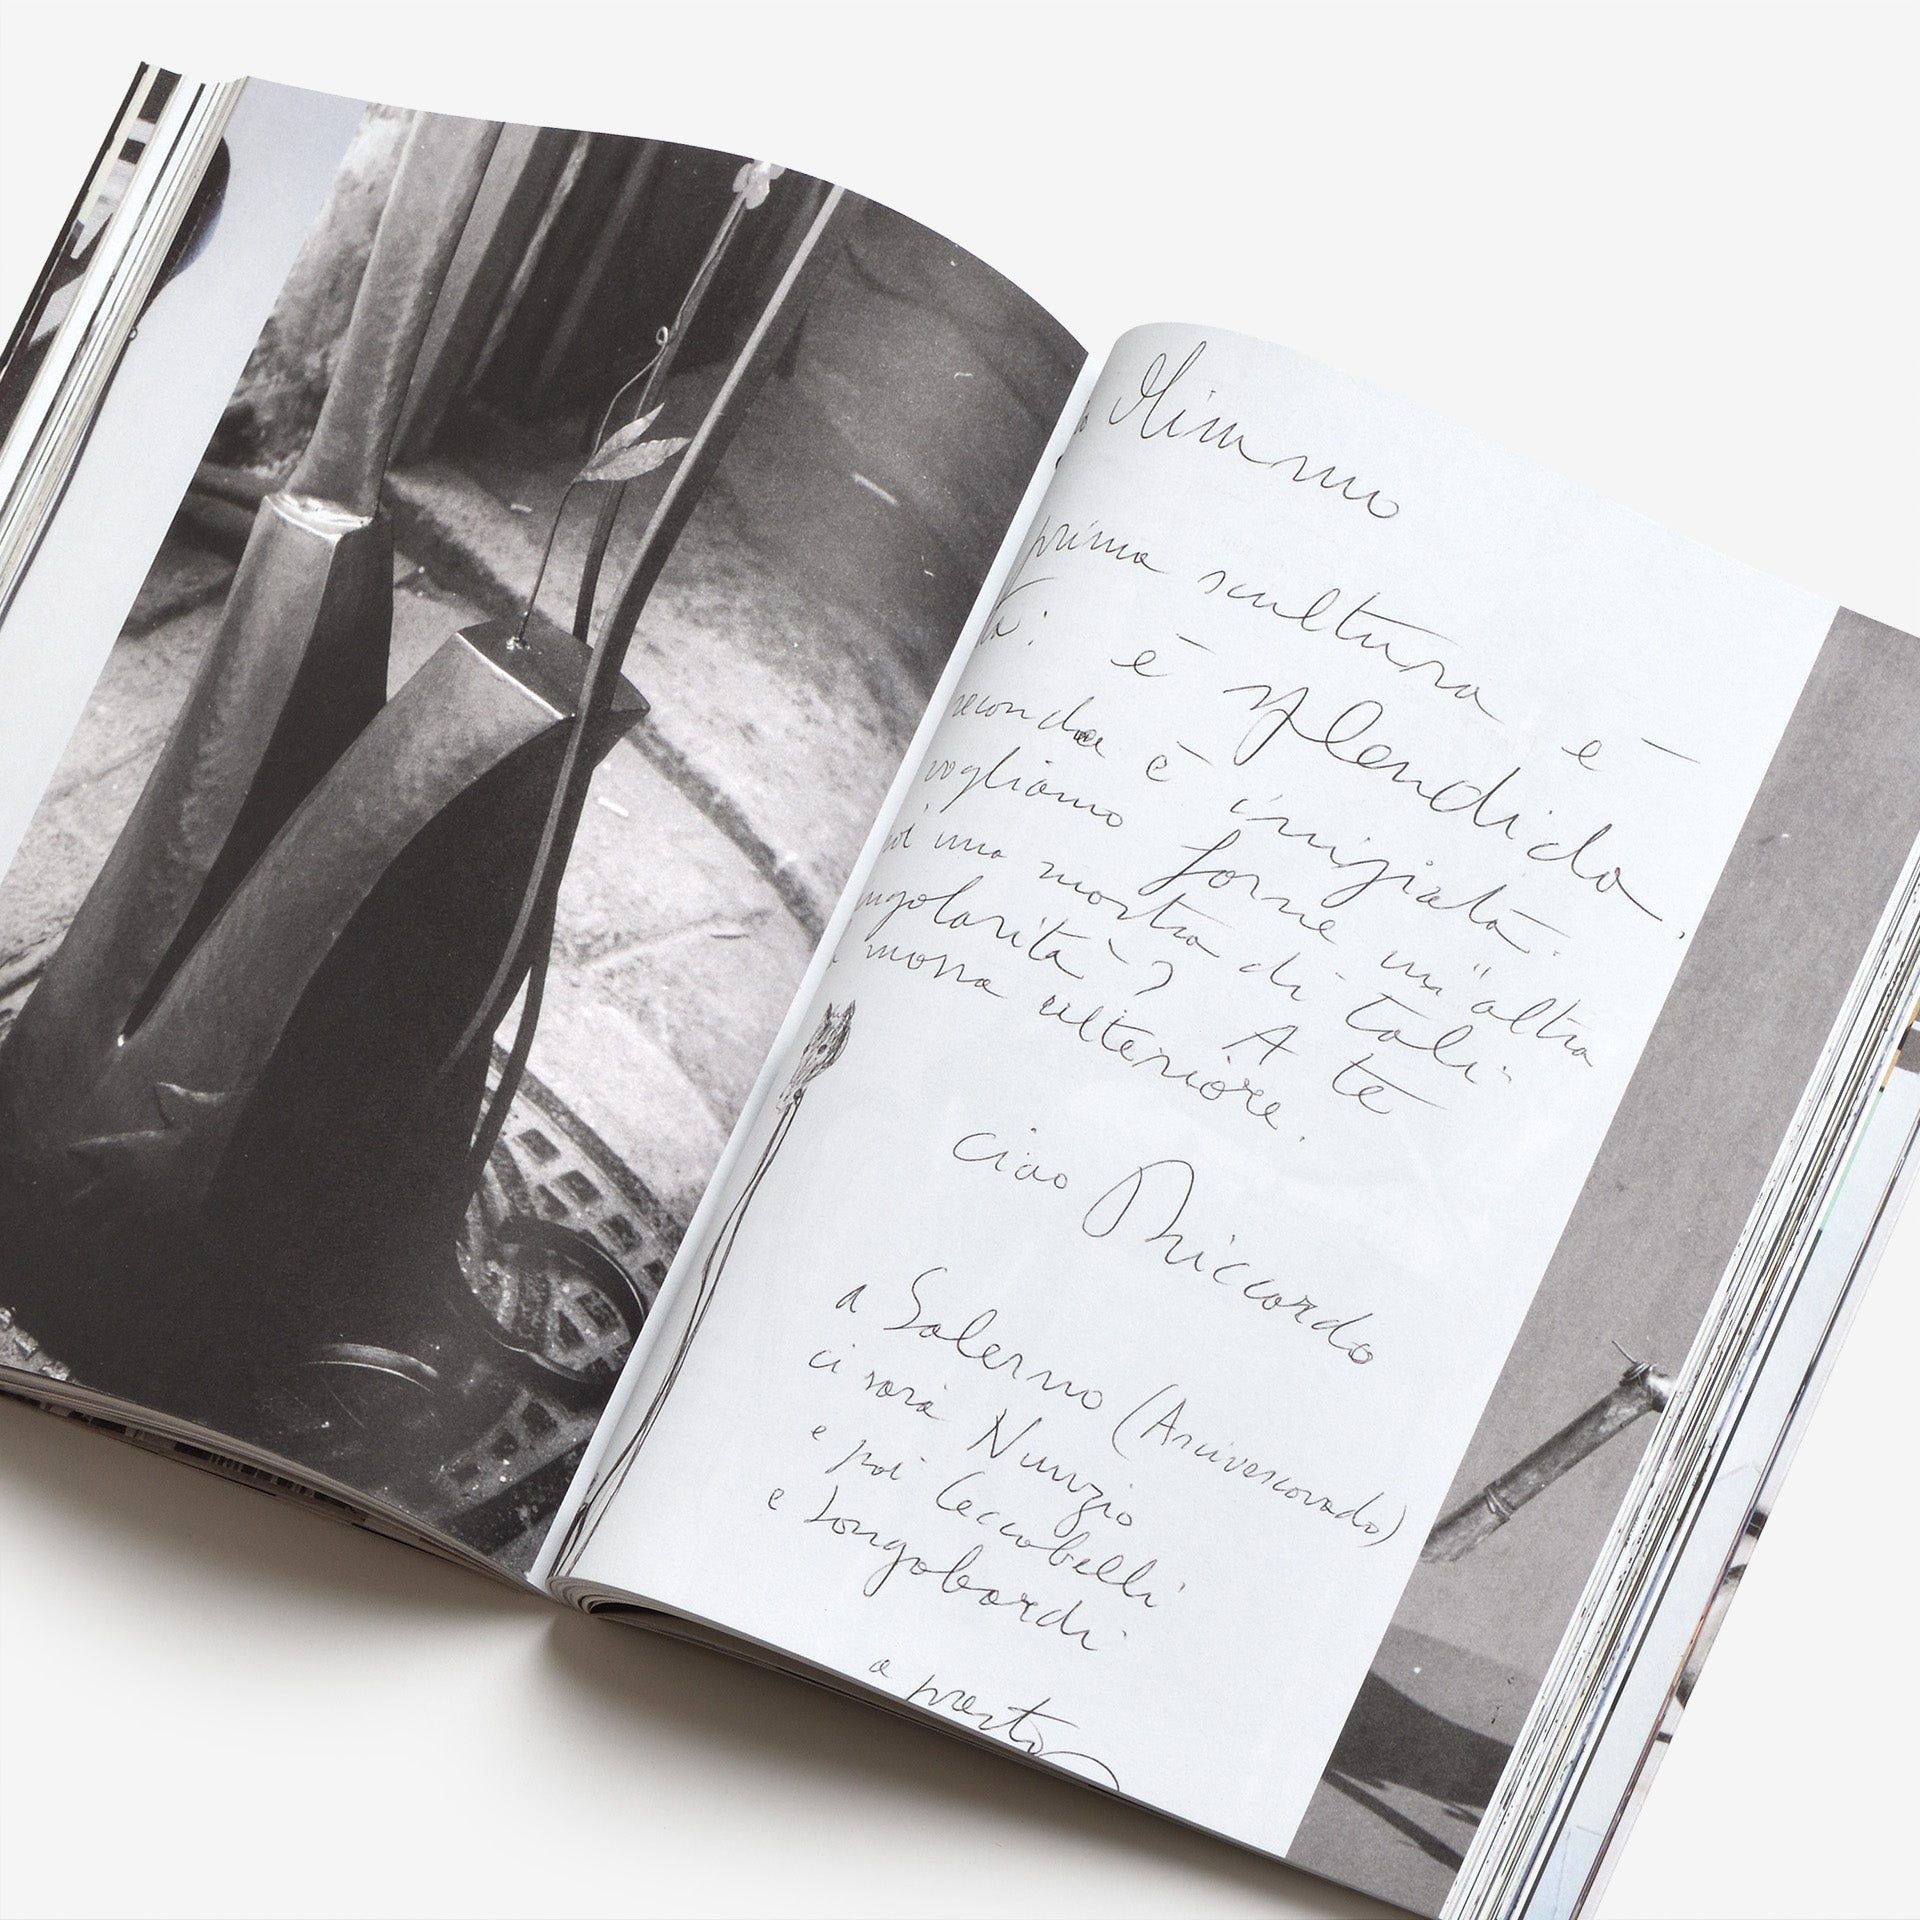 Mimmo
prima scultura è
è splendida.
seconda è iniziata.
vogliamo forse un'altra
una mostra di tali
ngolarità? A te
mossa ulteriore.
ciao Riccardo
a Salerno (Arcivescovado)
ci sarà Nunzio
e poi Ceccobelli
e Longobardi
a presto